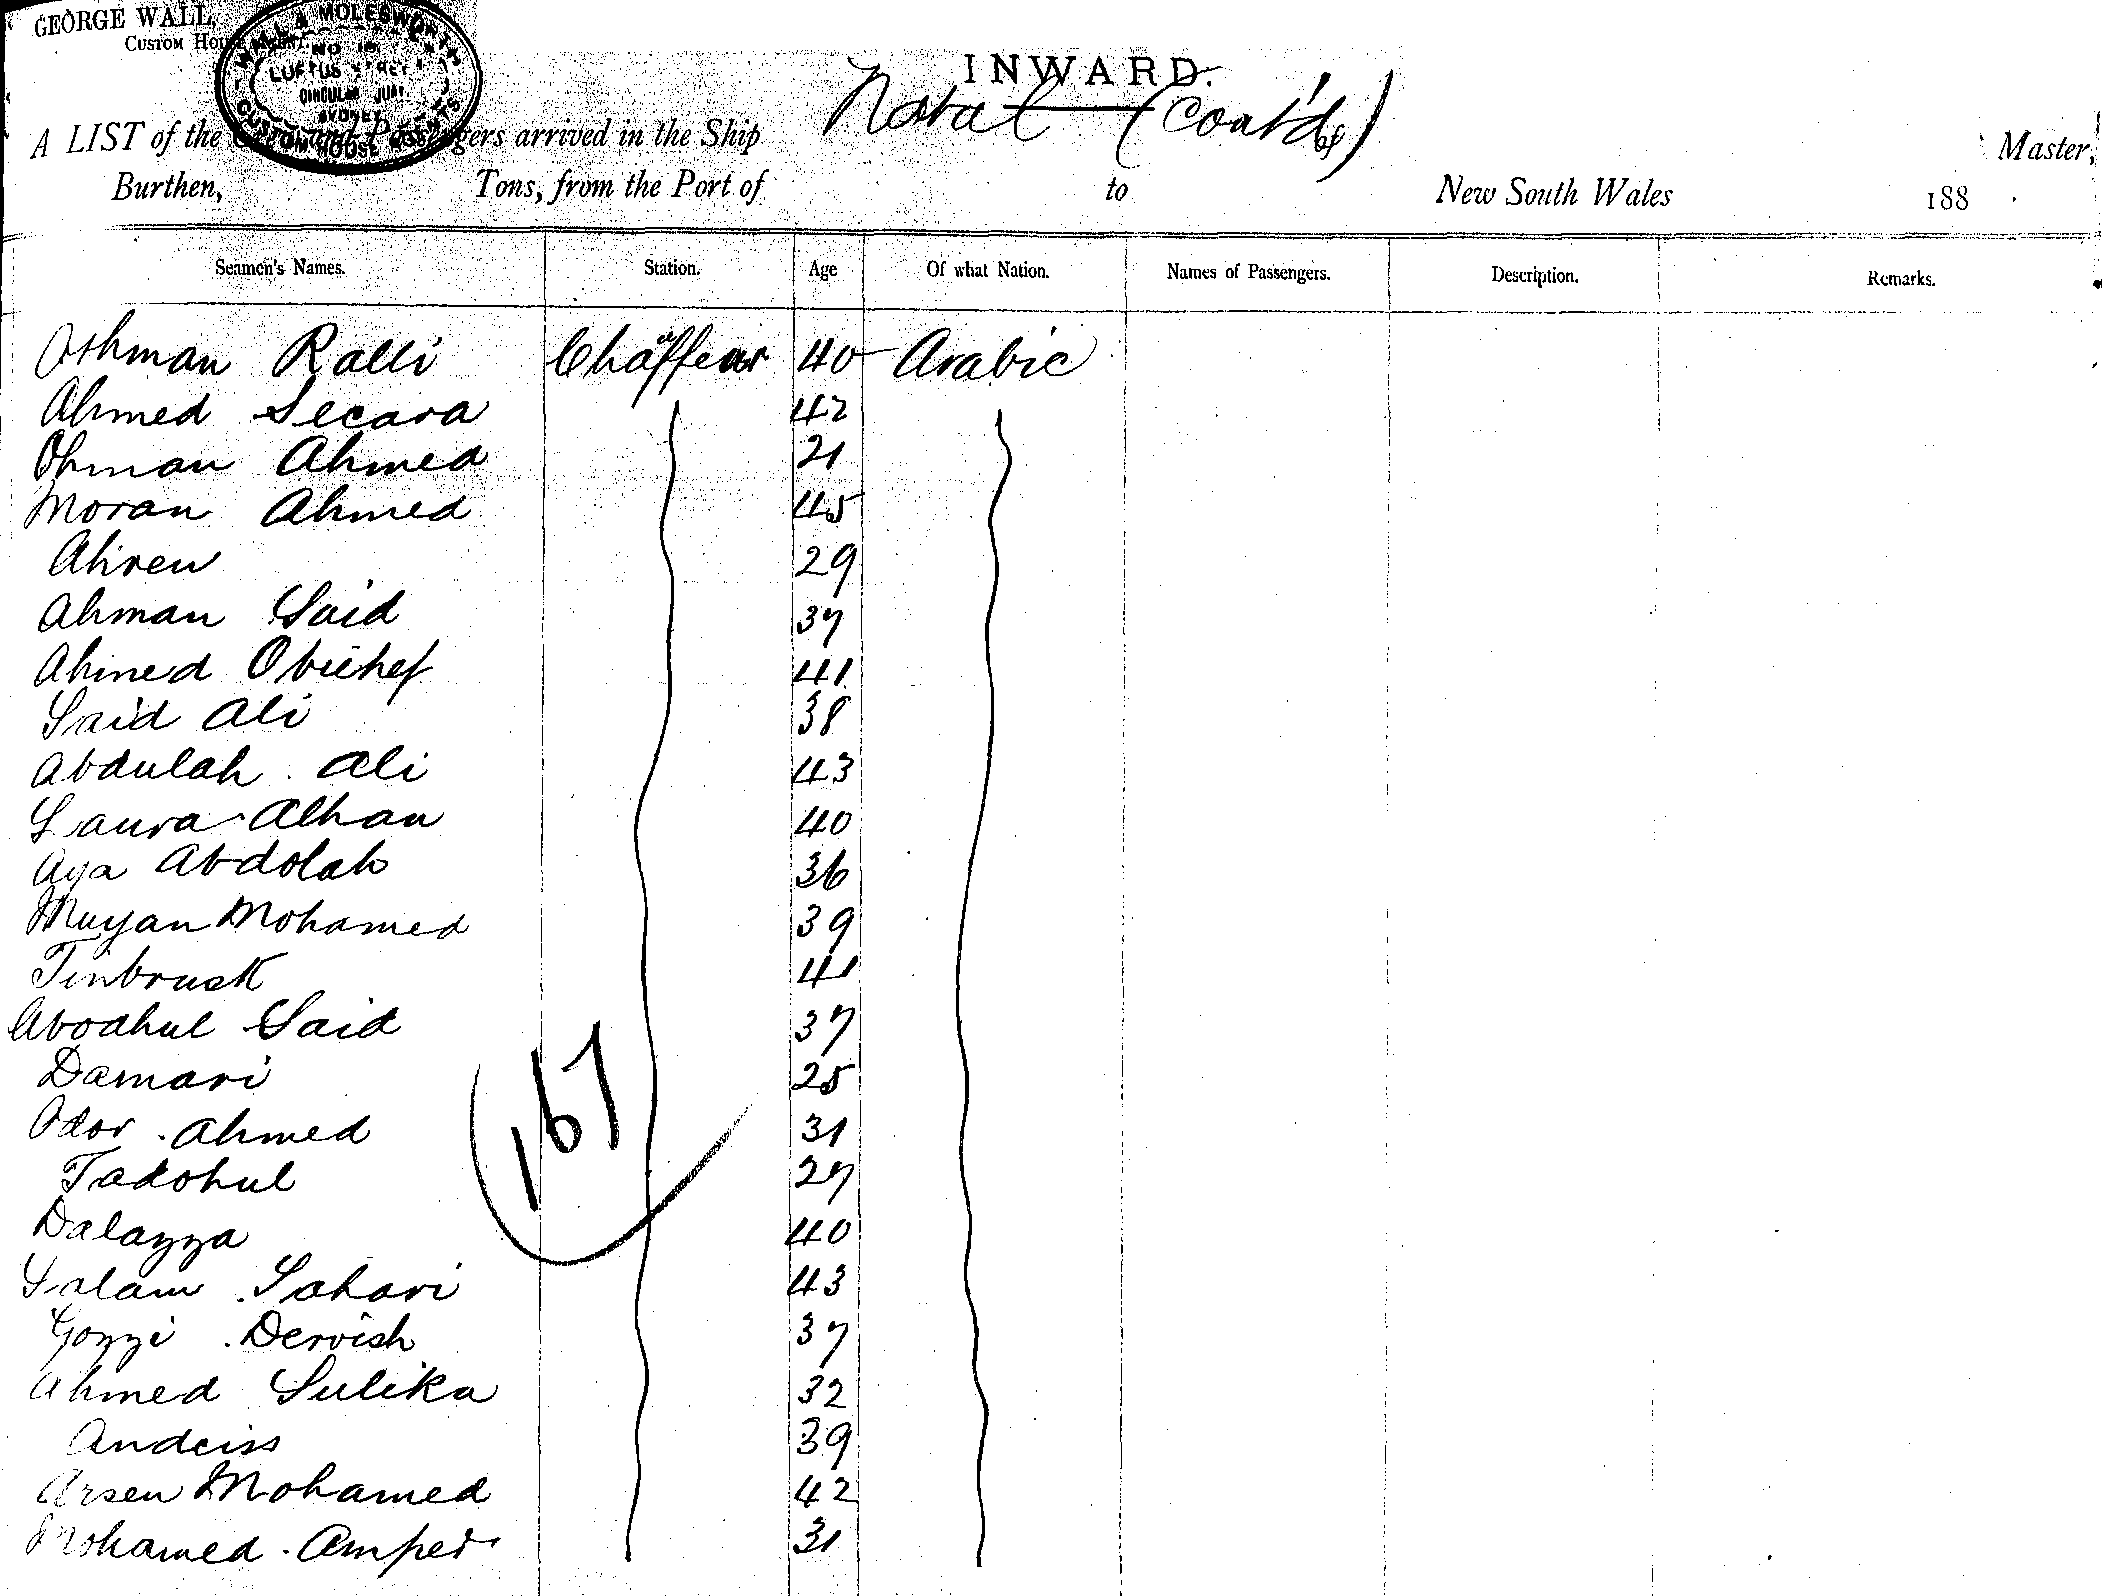 GEORGE WALL,
CUSTOM HOUSE AGENT.
WALL & MOLESWORTH
NO 10
LOFTUS STREET
CIRCULAR QUAY.
SYDNEY
CUSTOM HOUSE AGENTS
INWARD.
Natal (Cont'd)
A LIST of the Crew and Passengers arrived in the Ship of Master,
Burthen, Tons, from the Port of to New South Wales 188
Seamen's Names. Station. Age Of what Nation. Names of Passengers. Description. Remarks.
Oshman Ralli Chaffeur 40 Arabic
Ahmed Secara 42
Ohman Ahmed 21
Moran Ahmed 45
Ahren 29
Ahman Said 37
Ahmed 41
Said Ali 38
Abdulah. Ali 43
Laura Alhan 40
Aya Abdolah 36
Muyan Mohamed 39
Tinbrusk 41
Aboahul Said 37
Damari 25
Odor. Ahmed 31
Tadohul 27
Dalazza 40
Salam. Sahari 43
Gozzi. Dervish 37
Ahmed Sulika 32
Andeiss 39
Arsen Mohamed 42
Mohamed. Amped 31
167